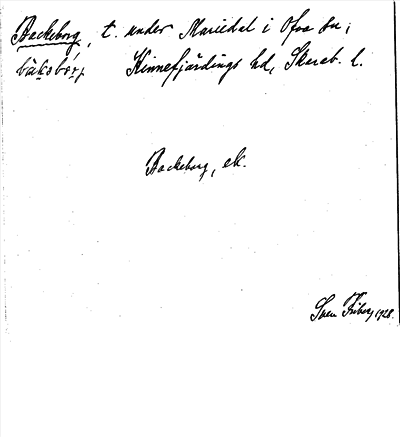 Backeborg, t. under Mariedal i Ova sn;
Kinnefjärdings hd, Skarab. l.
Backeborg, ek.
Sven Friberg 1928.